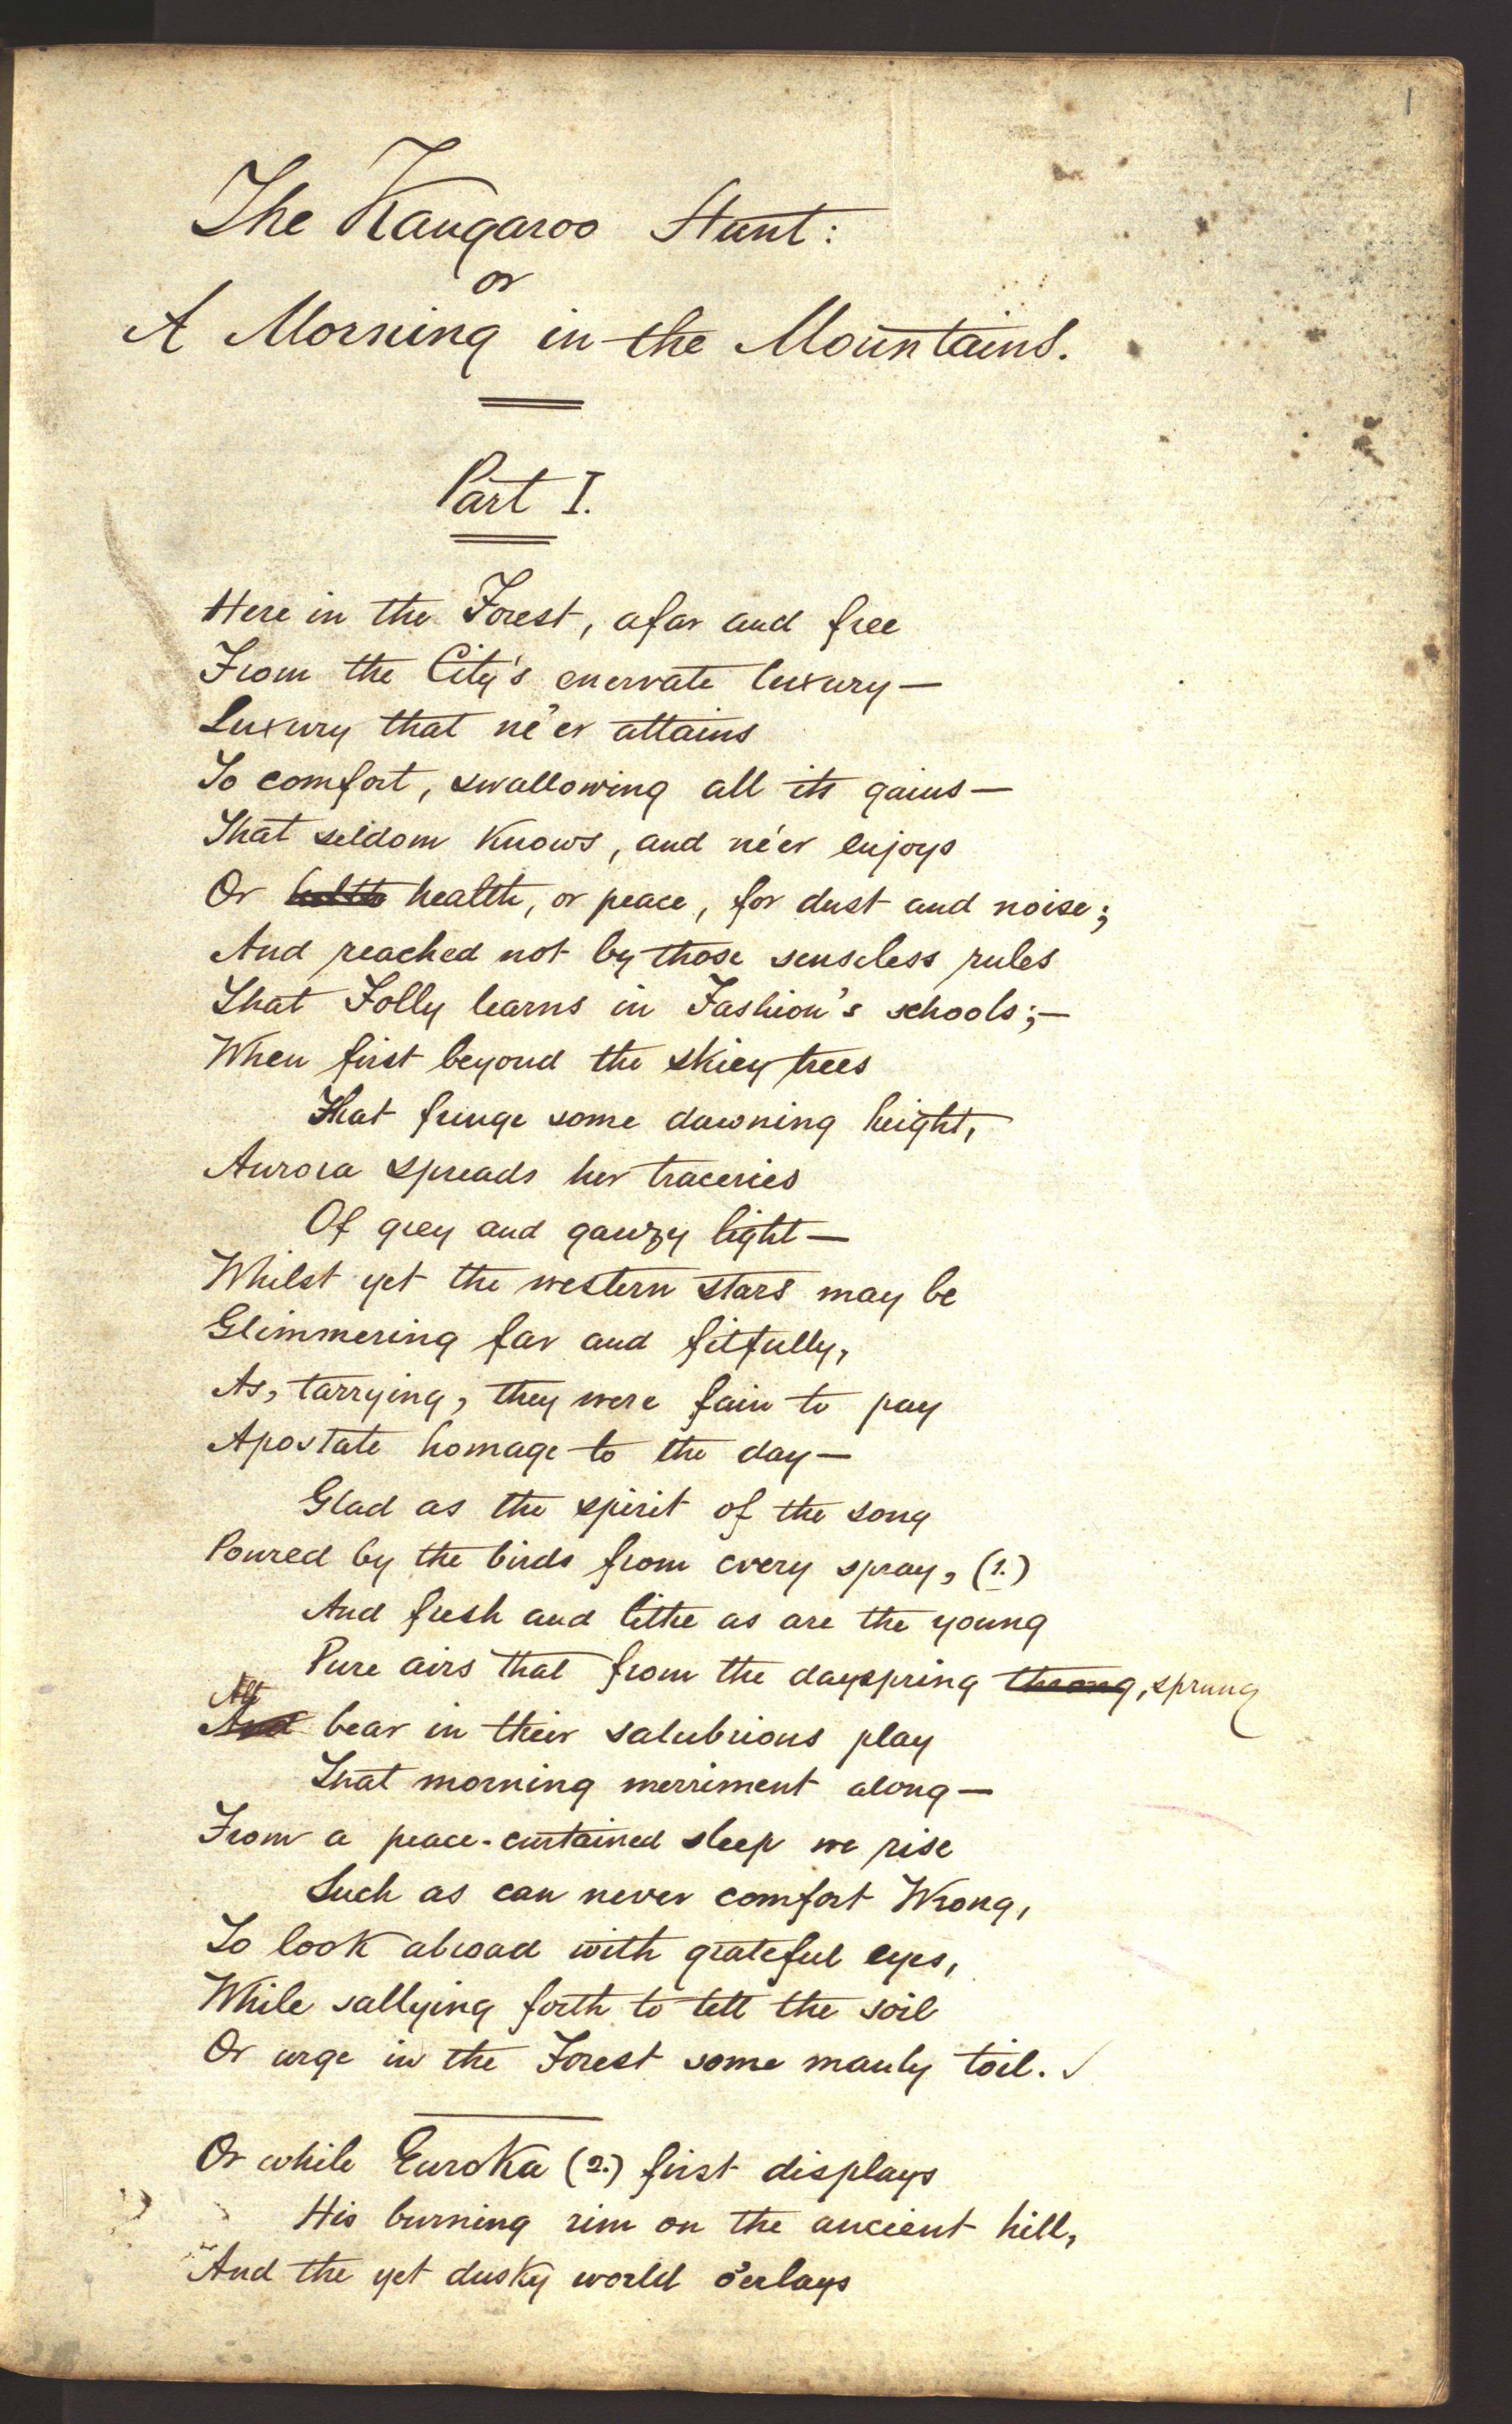 1
The Kangaroo Hunt:
or
A Morning in the Mountains.
Part I.
Here in the Forest, afar and free
From the City's enervate luxury—
Luxury that ne'er attains
To comfort, swallowing all its gains—
That seldom knows, and ne'er enjoys
Or health, or peace, for dust and noise;
And reached not by those senseless rules
That Folly learns in Fashion's schools;—
When first beyond the skiey trees
That fringe some dawning height,
Aurora spreads her traceries
Of grey and gauzy light—
Whilst yet the western stars may be
Glimmering far and fitfully,
As, tarrying, they were fain to pay
Apostate homage to the day—
Glad as the spirit of the song
Poured by the birds from every spray, (1.)
And fresh and lithe as are the young
Pure airs that from the dayspring throng, sprung
All
And bear in their salubrious play
That morning merriment along—
From a peace-curtained sleep we rise
Such as can never comfort Wrong,
To look abroad with grateful eyes,
While sallying forth to till the soil
Or urge in the Forest some manly toil.
Or while Euroka (2.) first displays
His burning rim on the ancient hill,
And the yet dusky world o'erlays